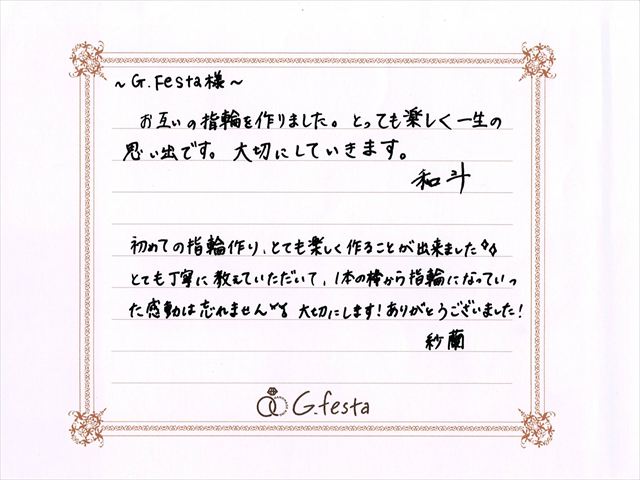 ～G.festa様～
お互いの指輪を作りました。とっても楽しく一生の
思い出です。大切にしていきます。
和斗
初めての指輪作り、とても楽しく作ることが出来ました
とても丁寧に教えていただいて、1本の棒から指輪になっていっ
た感動は忘れません 大切にします!ありがとうございました!
紗蘭
G.festa